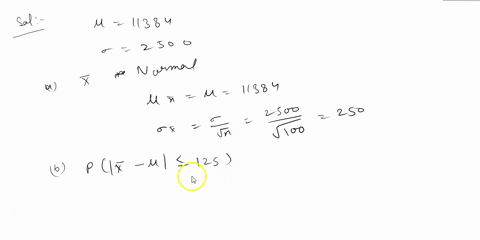 Sol:- μ = 11384
σ = 2500
a) x̄ → Normal
μx̄ = μ = 11384
σx̄ = σ/√n = 2500/√100 = 250
(b) P(|x̄ - μ| ≤ 125)